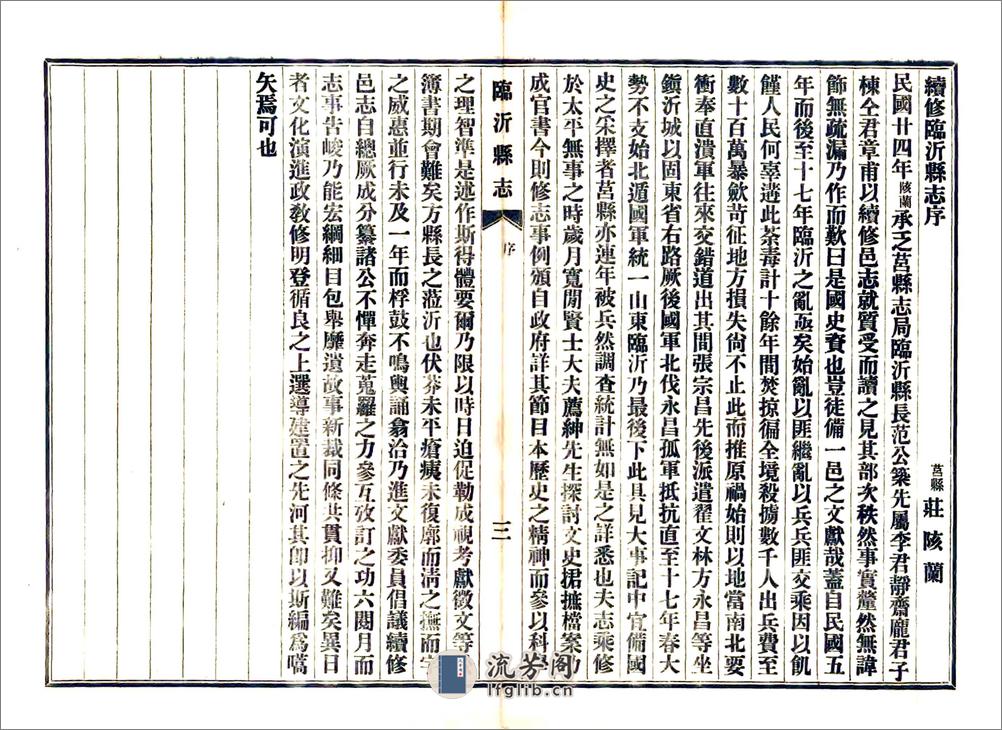 續修臨沂縣志序
莒縣 莊陔蘭
民國廿四年陔蘭承乏莒縣志局臨沂縣長范公築先屬李君靜齋龐君子
棟仝君章甫以續修邑志就質受而讀之見其部次秩然事實釐然無諱
飾無疏漏乃作而歎曰是國史資也豈徒備一邑之文獻哉蓋自民國五
年而後至十七年臨沂之亂亟矣始亂以匪繼亂以兵兵匪交乘因以飢
饉人民何辜遘此荼毒計十餘年間焚掠徧全境殺擄數千人出兵費至
數十百萬暴歛苛征地方損失尙不止此而推原禍始則以地當南北要
衝奉直潰軍往來交錯道出其間張宗昌先後派遣翟文林方永昌等坐
鎭沂城以固東省右路厥後國軍北伐永昌孤軍抵抗直至十七年春大
勢不支始北遁國軍統一山東臨沂乃最後下此具見大事記中宜備國
史之采擇者莒縣亦連年被兵然調查統計無如是之詳悉也夫志乘修
於太平無事之時歲月寬閒賢士大夫薦紳先生探討文史捃摭檔案勒
成官書今則修志事例頒自政府詳其節目本歷史之精神而參以科學
臨沂縣志
序
三
之理智準是述作斯得體要爾乃限以時日迫促勒成視考獻徵文等於
簿書期會難矣方縣長之蒞沂也伏莽未平瘡痍未復廓而淸之撫而字
之威惠並行未及一年而桴鼓不鳴輿誦翕洽乃進文獻委員倡議續修
邑志自總厥成分纂諸公不憚奔走蒐羅之力參互攷訂之功六閱月而
志事告峻乃能宏綱細目包舉靡遺故事新裁同條共貫抑又難矣異日
者文化演進政敎修明登循良之上選導建置之先河其卽以斯編爲嚆
矢焉可也
流芳阁
lfglib.cn